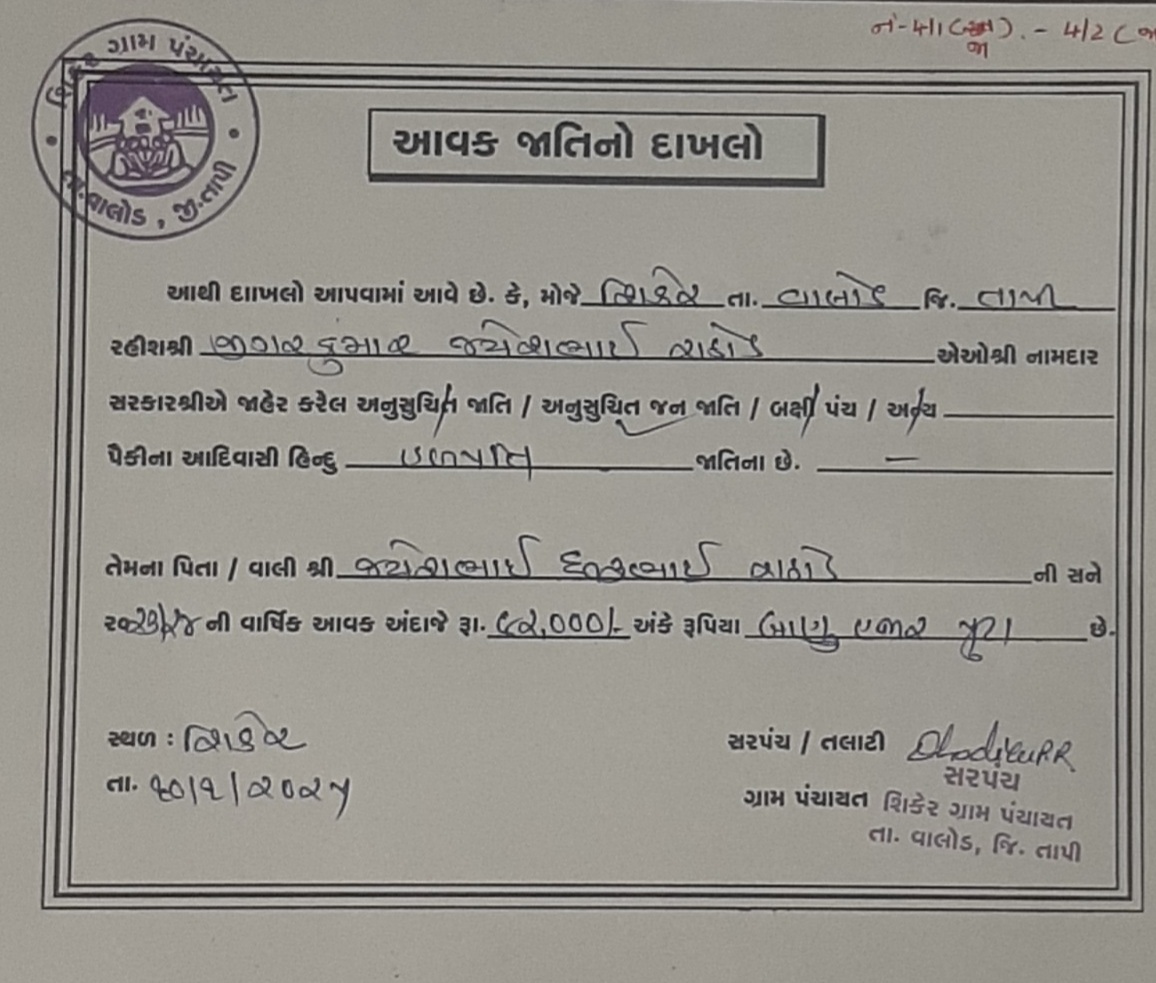 નં-૪/૧ ( જ ) . - ૪/૨ ( જ
શિકેર ગ્રામ પંચાયત
તા.વાલોડ , જી.તાપી
આવક જાતિનો દાખલો
આથી દાાખલો આપવામાં આવે છે. કે, મોજે શિકેર તા. વાલોડ જિ. તાપી
રહીશશ્રી જીગરકુમાર જયેશભાઈ રાઠોડ એઓશ્રી નામદાર
સરકારશ્રીએ જાહેર કરેલ અનુસુચિત જાતિ / અનુસુચિત જન જાતિ / બક્ષી પંચ / અન્ય
પૈકીના આદિવાસી હિન્દુ હળપતિ જાતિના છે. —
તેમના પિતા / વાલી શ્રી જયેશભાઈ રાઠોડ ની સને
૨૦૨૩/૨૪ ની વાર્ષિક આવક અંદાજે રૂા. ૯૨,૦૦૦/- અંકે રૂપિયા બાણુ હજાર પુરા છે.
સ્થળ : શિકેર
તા. ૧૦/૧/૨૦૨૫
સરપંચ / તલાટી
સરપંચ
ગ્રામ પંચાયત શિકેર ગ્રામ પંચાયત
તા. વાલોડ, જિ. તાપી